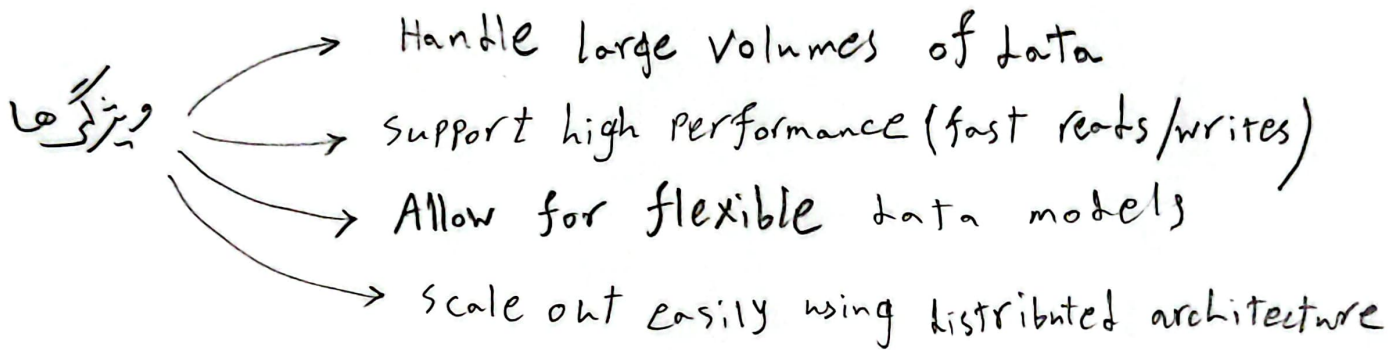 ویژگی ها
Handle large volumes of data
support high performance (fast reads/writes)
Allow for flexible data models
scale out easily using distributed architecture